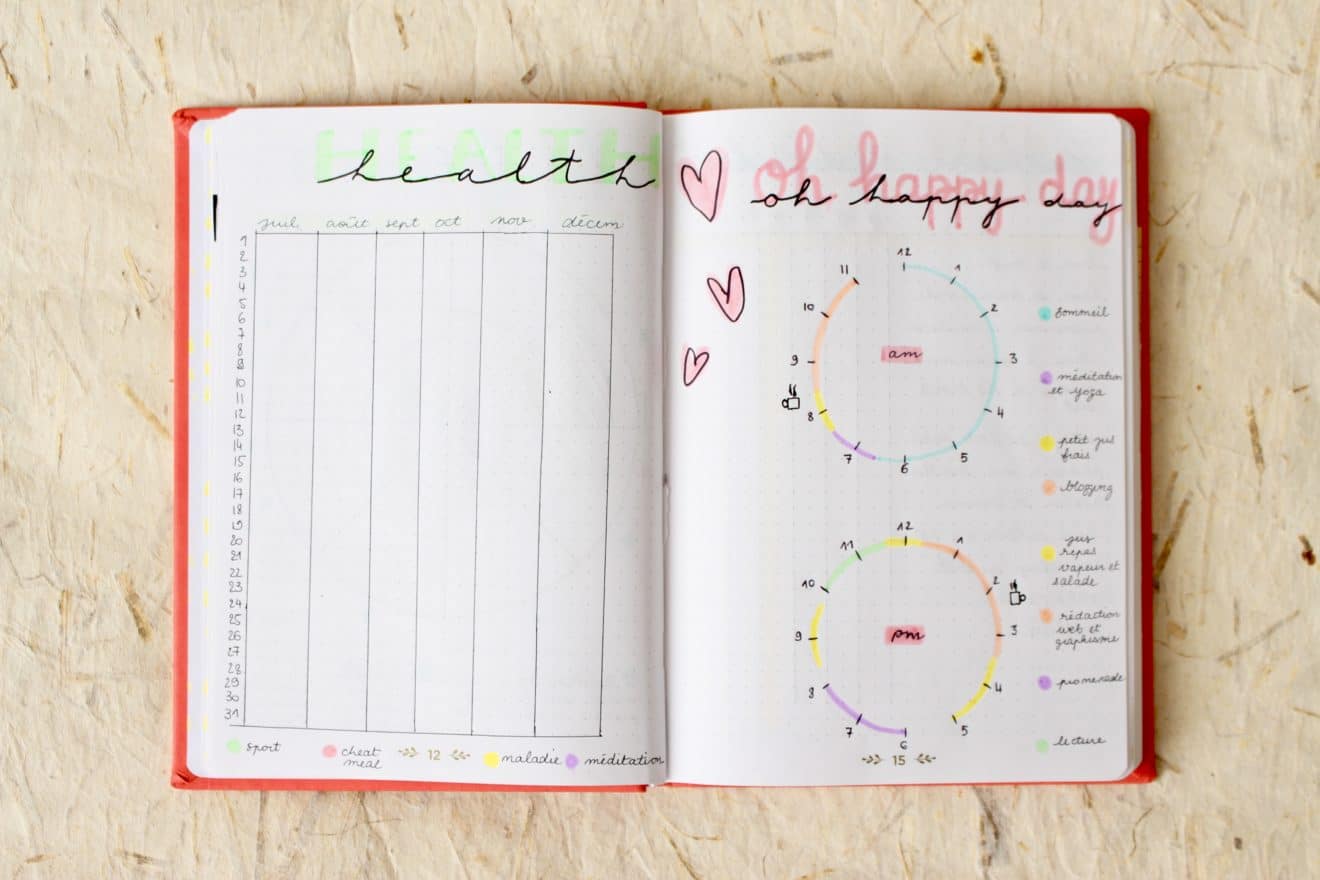 HEALTH
health
juil. août sept oct nov. décem
1
2
3
4
5
6
7
8
9
10
11
12
13
14
15
16
17
18
19
20
21
22
23
24
25
26
27
28
29
30
31
sport
cheat
meal
maladie
méditation
12
oh happy day
oh happy day
12
1
2
3
4
5
6
7
8
9
10
11
am
sommeil
méditation
et yoga
petit jus
frais
blogging
12
1
2
3
4
5
6
7
8
9
10
11
pm
jus
repas
vapeur et
salade
rédaction
web et
graphisme
promenade
lecture
15